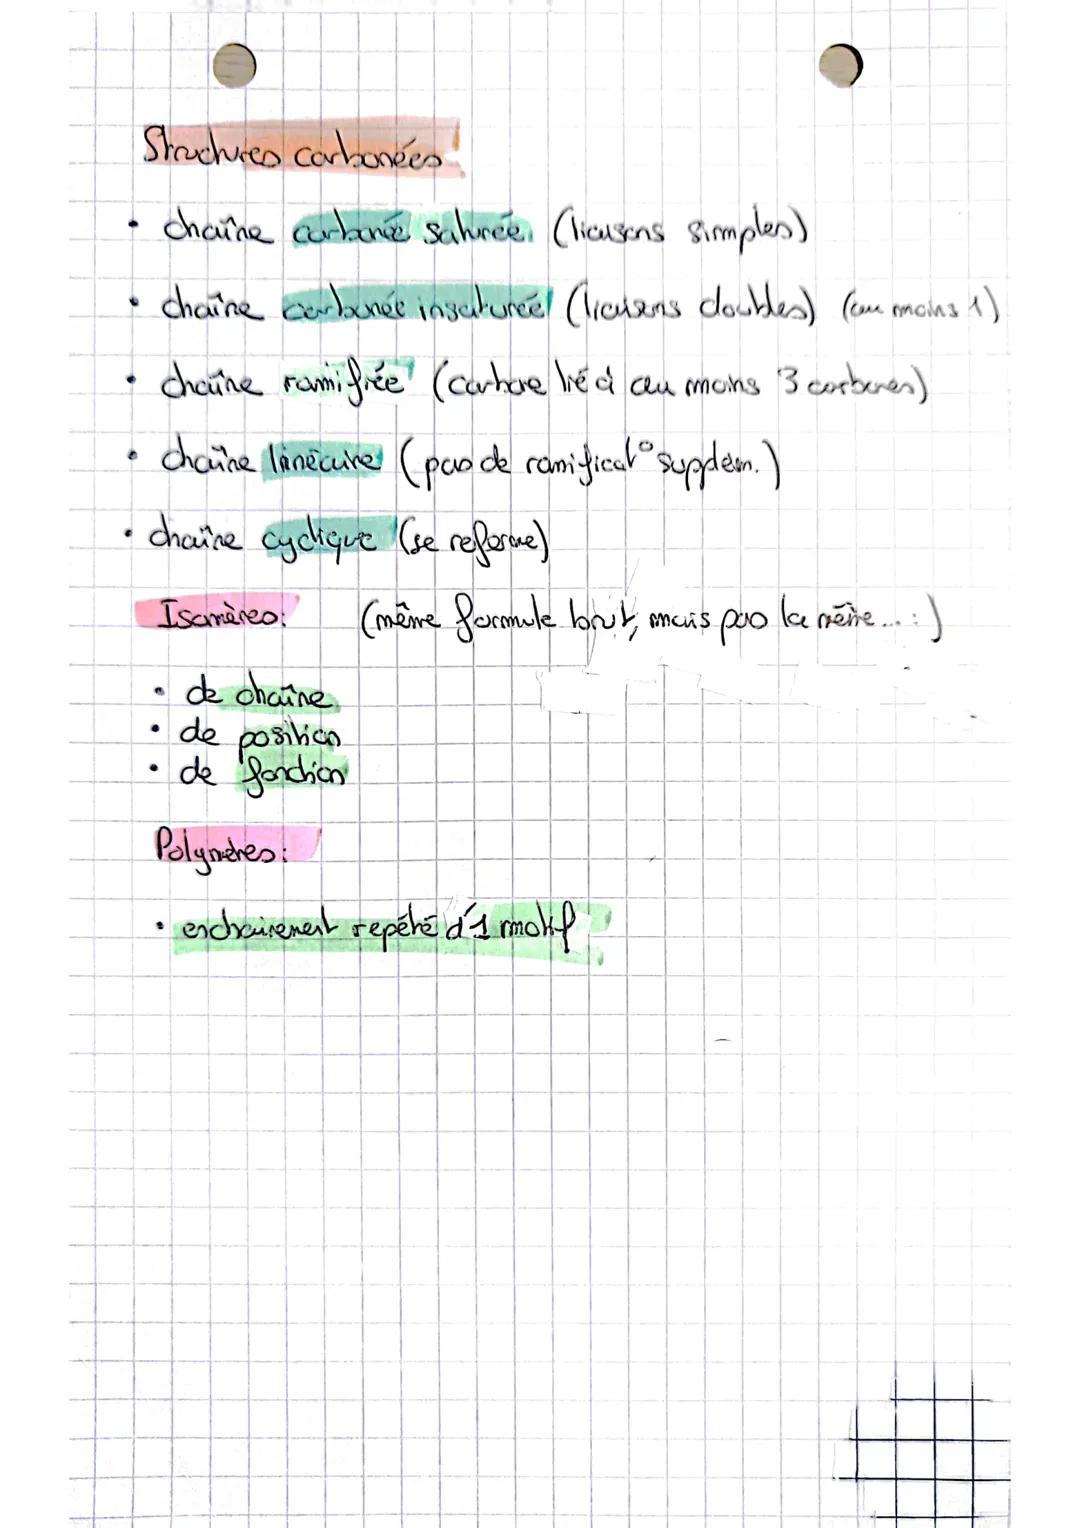 Structures carbonées
• chaîne carbonée saturée (liaisons simples)
• chaîne carbonée insaturée (liaisons doubles) (au moins 1)
• chaîne ramifiée (carbone lié à au moins 3 carbones)
• chaîne linéaire (pas de ramificat° supplém.)
• chaîne cyclique (se referme)
Isomères: (même formule brut, mais pas la même...:)
• de chaîne
• de position
• de fonction
Polymères:
• enchainement repété d'1 motif